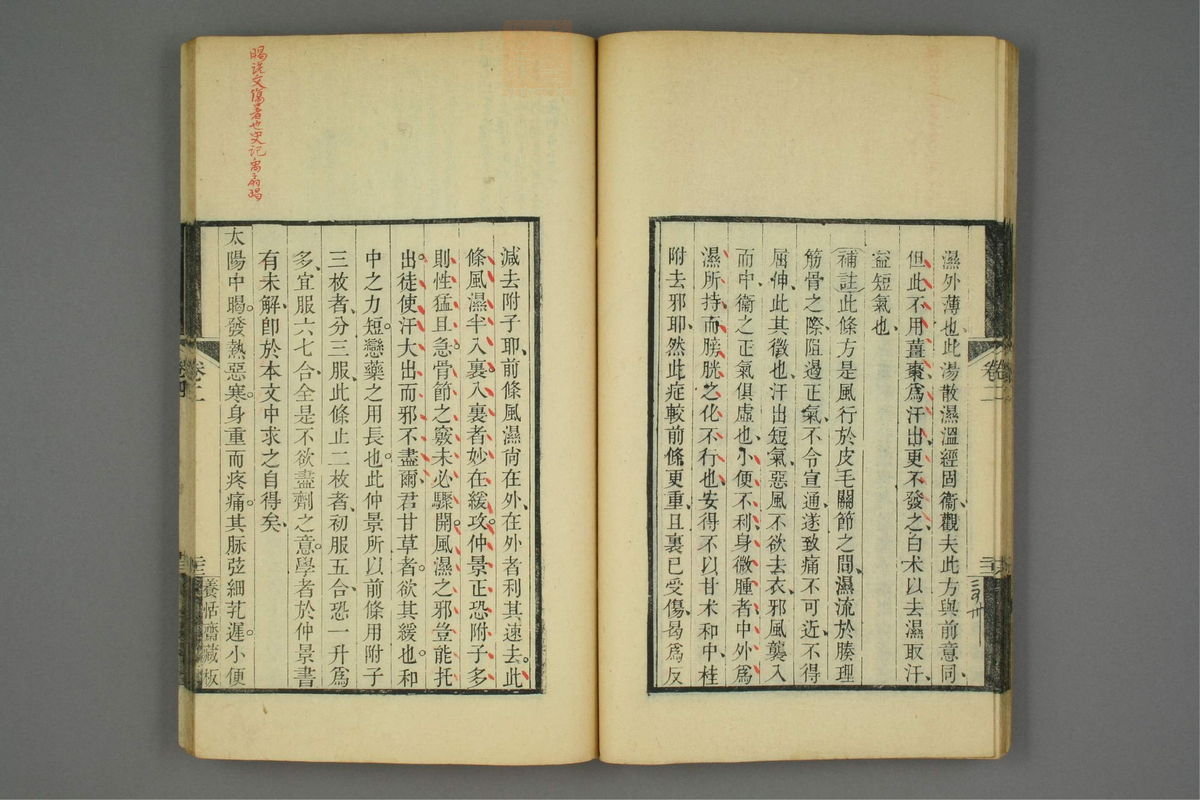 濕外薄也此湯散濕溫經固衞觀夫此方與前意同
但此不用薑棗爲汗出更不發之白术以去濕取汗
益短氣也
補註此條方是風行於皮毛關節之間濕流於腠理
筋骨之際阻遏正氣不令宣通遂致痛不可近不得
屈伸此其徵也汗出短氣惡風不欲去衣邪風襲入
而中衞之正氣俱虛也小便不利身微腫者中外爲
濕所持而膀胱之化不行也安得不以甘术和中桂
附去邪耶然此症較前條更重且裏已受傷曷爲反
減去附子耶前條風濕尙在外在外者利其速去此
條風濕半入裏入裏者妙在緩攻仲景正恐附子多
則性猛且急骨節之竅未必驟開風濕之邪豈能托
出徒使汗大出而邪不盡爾君甘草者欲其緩也和
中之力短戀藥之用長也此仲景所以前條用附子
三枚者分三服此條止二枚者初服五合恐一升爲
多宜服六七合全是不欲盡劑之意學者於仲景書
有未解卽於本文中求之自得矣
太陽中暍發熱惡寒身重而疼痛其脉弦細芤遲小便
卷二
養恬齋藏板
卷二
暍說文傷暑也史記禹扇暍